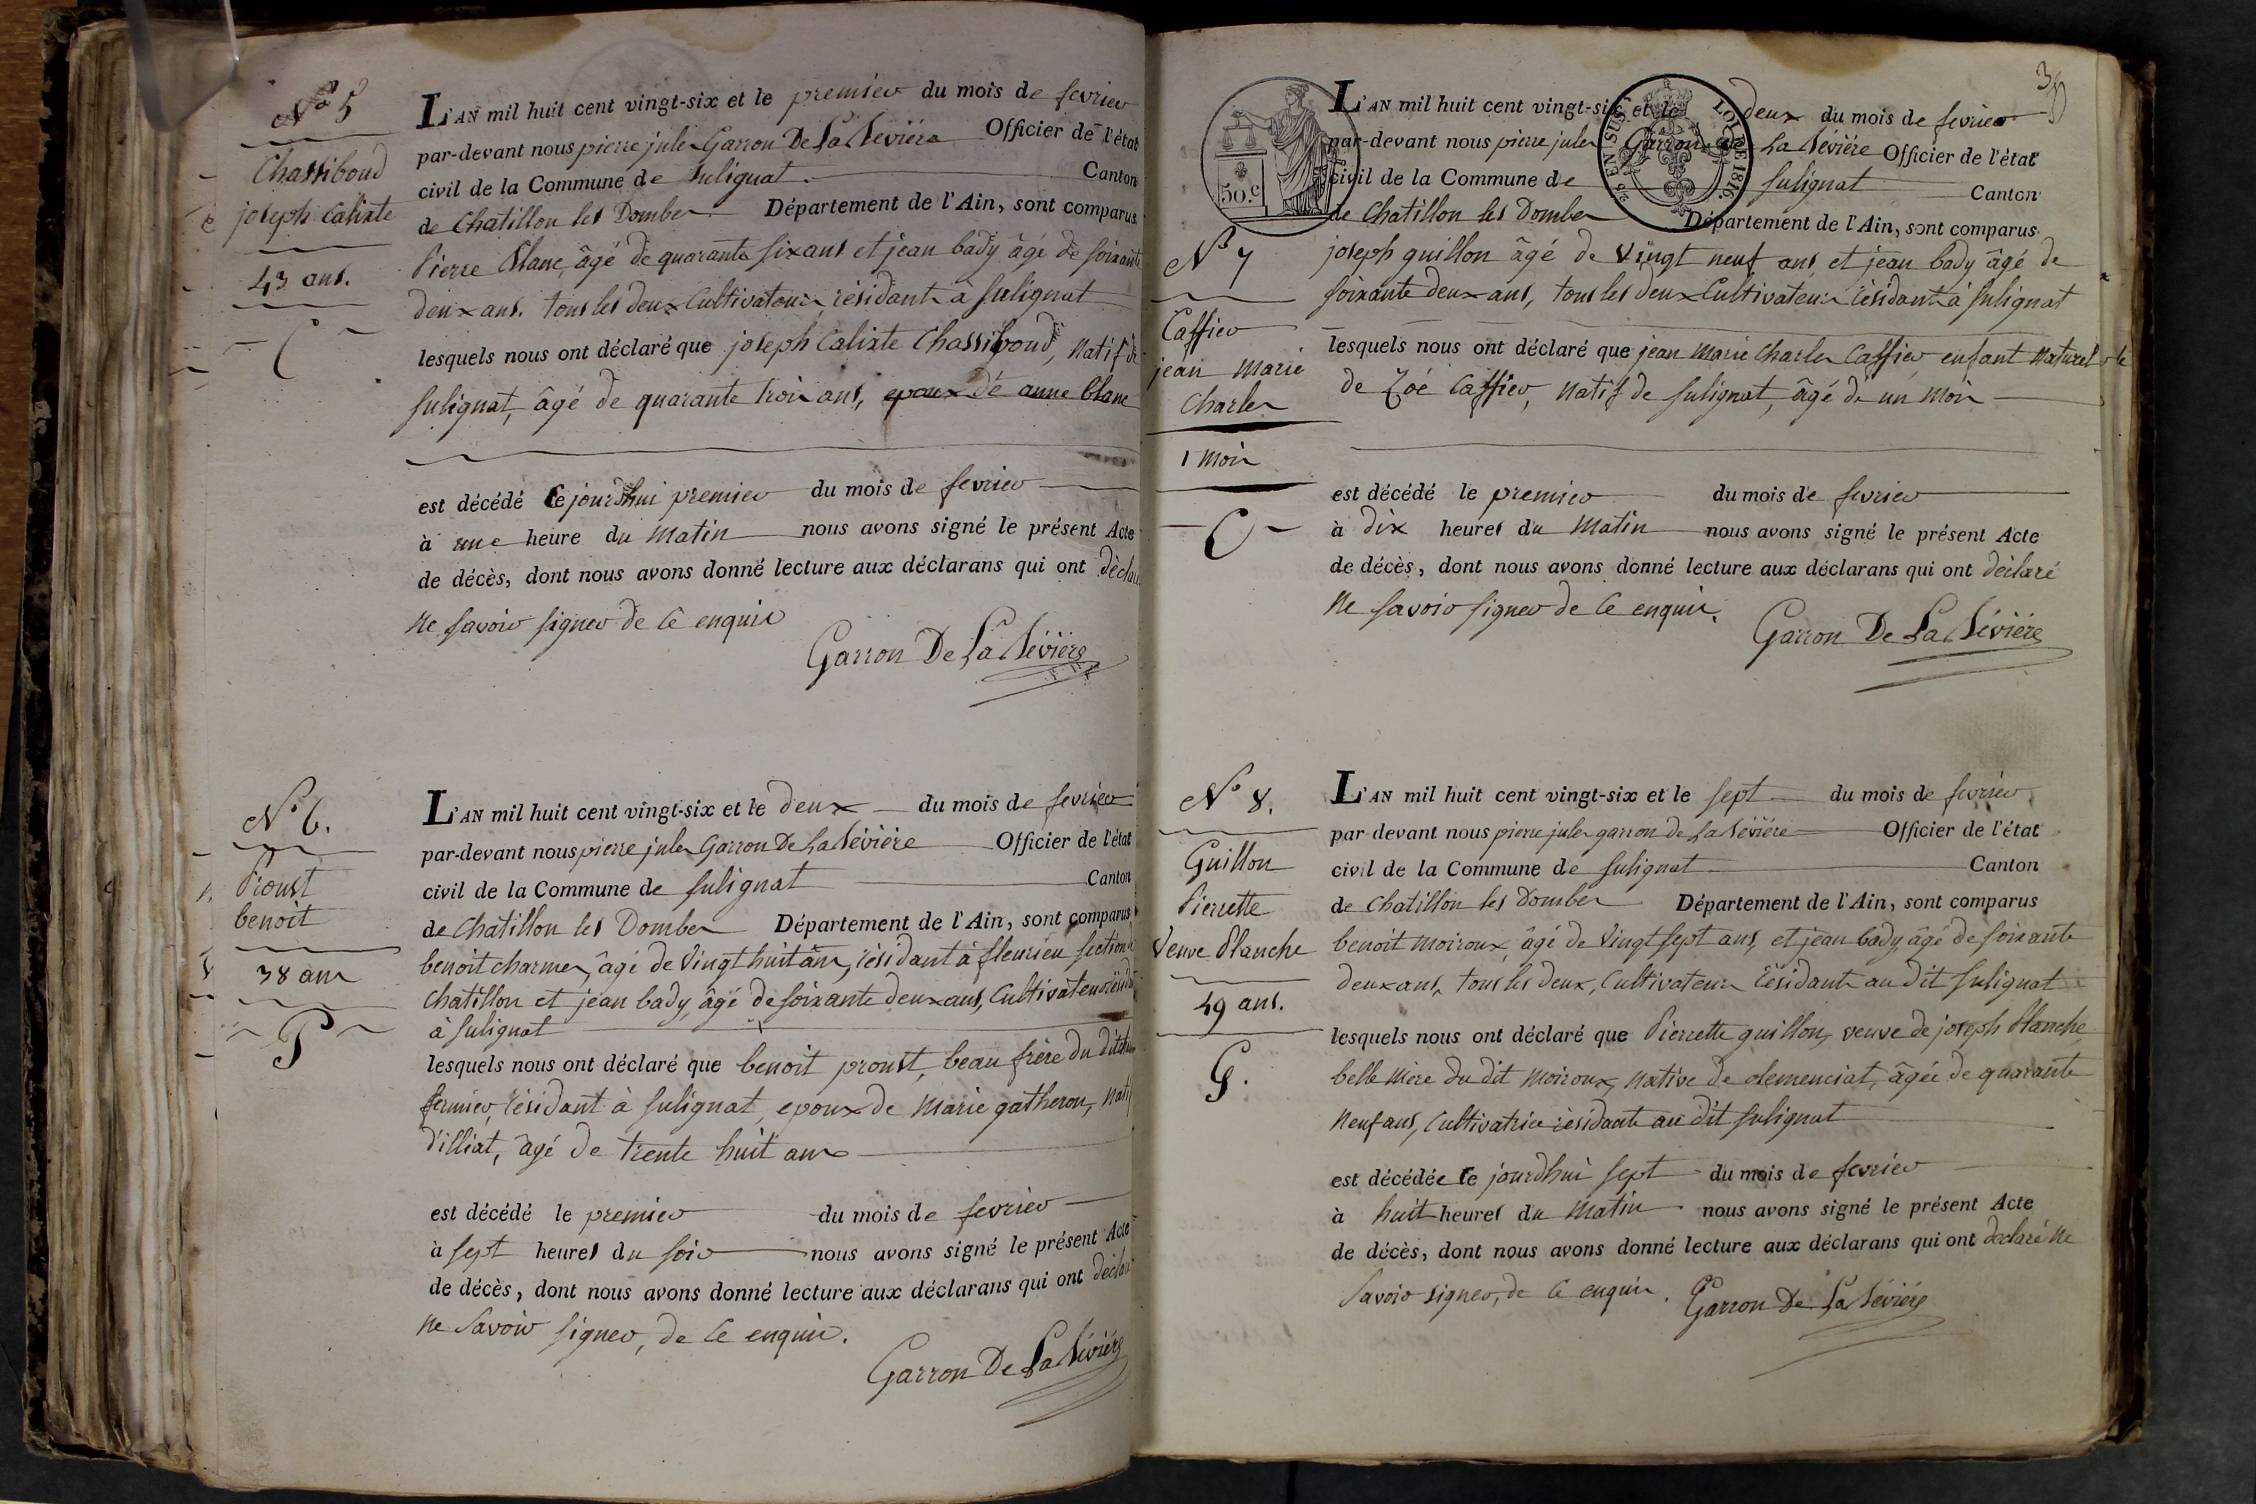 N.o 5
Chassiboud
joseph Calixte
43 ans.
C
L'AN mil huit cent vingt-six et le premier du mois de fevrier
par-devant nous pierre jules Garron De La Sévière Officier de l'état
civil de la Commune de Sulignat Canton
de Chatillon les Dombes Département de l'Ain, sont comparus
Pierre Blanc, âgé de quarante six ans et jean bady âgé de soixante
deux ans. tous les deux Cultivateurs résidants à Sulignat
lesquels nous ont déclaré que joseph Calixte Chassiboud, natif de
Sulignat, âgé de quarante trois ans, epoux de anne blanc
est décédé Ce jourdhui premier du mois de fevrier
à une heure du Matin nous avons signé le présent Acte
de décès, dont nous avons donné lecture aux déclarans qui ont déclaré
ne savoir signer de ce enquis
Garron De La Sévière
N.o 6.
Proust
benoit
38 ans
P
L'AN mil huit cent vingt-six et le deux du mois de fevrier
par-devant nous pierre jules Garron De La Sévière Officier de l'état
civil de la Commune de Sulignat Canton
de Chatillon les Dombes Département de l'Ain, sont comparus
benoit charmes, âgé de Vingt huit ans, résidant à fleurieu section de
Chatillon et jean bady, âgé de soixante deux ans, Cultivateurs résidant
à Sulignat
lesquels nous ont déclaré que benoit proust, beau frère du dit
fermier, résidant à Sulignat, epoux de Marie gatheron, natif
d'illiat, âgé de trente huit ans
est décédé le premier du mois de fevrier
à sept heures du soir nous avons signé le présent Acte
de décès, dont nous avons donné lecture aux déclarans qui ont déclaré
ne Savoir signer, de ce enquis.
Garron De La Sévière
38
50.c
2/5 EN SUS
LOI DE 1816.
L'AN mil huit cent vingt-six et le deux du mois de fevrier
par-devant nous pierre jules Garron de La Sévière Officier de l'état
civil de la Commune de Sulignat Canton
de Chatillon les Dombes Département de l'Ain, sont comparus
N.o 7
Caffier
jean Marie
Charles
1 Mois
C
joseph guillon âgé de Vingt neuf ans et jean bady âgé de
soixante deux ans, tous les deux Cultivateurs résidants à Sulignat
lesquels nous ont déclaré que jean Marie Charles Caffier, enfant naturel
de Zoé Caffier, natif de Sulignat, âgé de un Mois
est décédé le premier du mois de fevrier
à dix heures du Matin nous avons signé le présent Acte
de décès, dont nous avons donné lecture aux déclarans qui ont déclaré
ne savoir signer de ce enquis.
Garron De La Sévière
N.o 8.
Guillon
Pierrette
Veuve Planche
49 ans.
G.
L'AN mil huit cent vingt-six et le sept du mois de fevrier
par-devant nous pierre jules garron de La Sévière Officier de l'état
civil de la Commune de Sulignat Canton
de Chatillon les Dombes Département de l'Ain, sont comparus
benoit moiroux, âgé de Vingt sept ans, et jean bady, âgé de soixante
deux ans, tous les deux, Cultivateurs résidants au dit Sulignat
lesquels nous ont déclaré que Pierrette guillon, veuve de joseph Planche
belle mère du dit moiroux, native de clemenciat, âgée de quarante
neuf ans, Cultivatrice résidante au dit Sulignat
est décédée Ce jourdhui sept du mois de fevrier
à huit heures du Matin nous avons signé le présent Acte
de décès, dont nous avons donné lecture aux déclarans qui ont declaré ne
Savoir signer, de ce enquis.
Garron De La Sévière